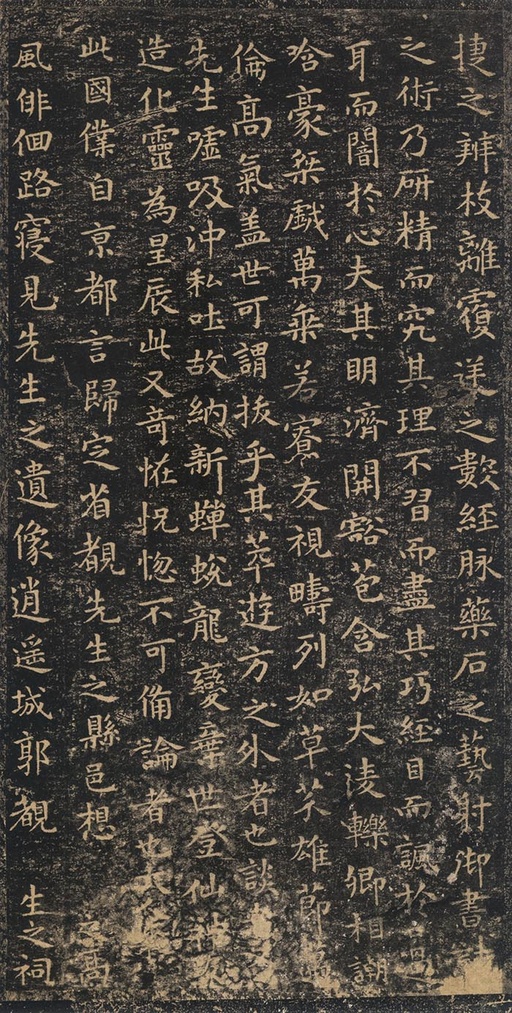 捷之辨枝離覆逆之數經脉藥石之藝射御書計
之術乃研精而究其理不習而盡其巧經目而諷於口過
耳而闇於心夫其明濟開豁苞含弘大淩轢卿相謿
哈豪桀戱萬乗若寮友視疇列如草芥雄節邁
倫髙氣盖世可謂拔乎其萃遊方之外者也談者
先生嘘吸沖和吐故納新蟬蛻龍變棄世登仙神
造化靈為星辰此又竒恠怳惚不可俻論者也大
此國僕自亰都言歸定省覩先生之縣邑想 髙
風俳佪路寑見先生之遺像逍遥城郭覩 生之祠